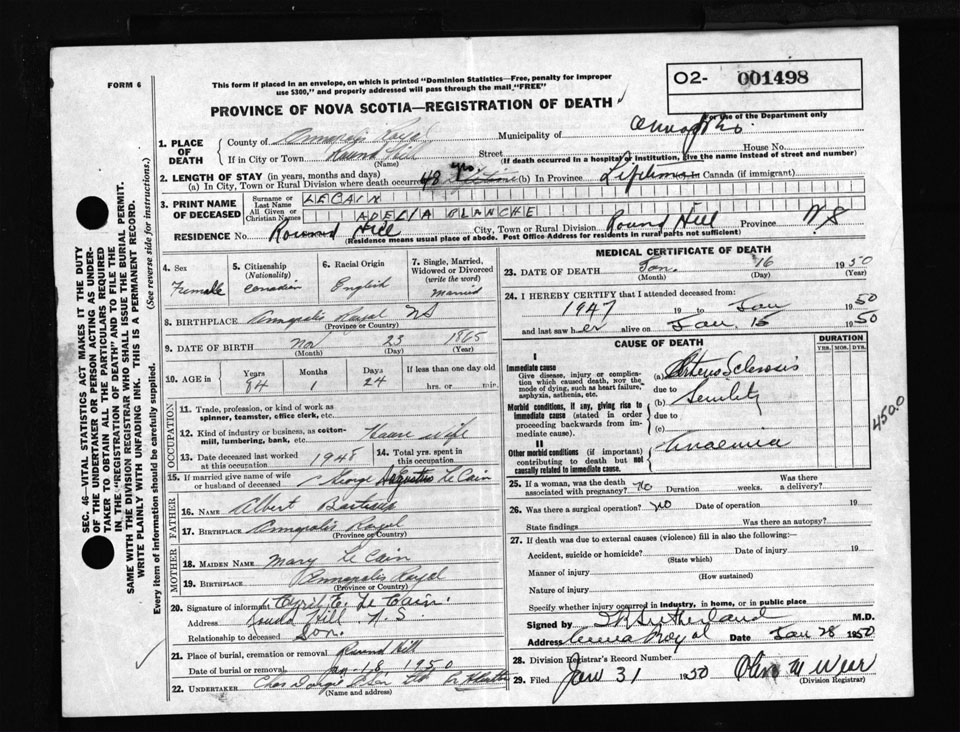 FORM 6
This form if placed in an envelope, on which is printed "Dominion Statistics—Free, penalty for improper
use $300," and properly addressed will pass through the mail "FREE"
O2- 001498
For use of the Department only
PROVINCE OF NOVA SCOTIA—REGISTRATION OF DEATH
1. PLACE OF DEATH
County of Annapolis Royal Municipality of
If in City or Town Round Hill Street House No.
(Name) (If death occurred in a hospital or institution, give the name instead of street and number)
2. LENGTH OF STAY (in years, months and days)
(a) In City, Town or Rural Division where death occurred 48 yrs. (b) In Province Lifetime Canada (if immigrant)
3. PRINT NAME OF DECEASED
Surname or Last Name LECAIN
All Given or Christian Names ADELIA BLANCHE
RESIDENCE No. Round Hill City, Town or Rural Division Round Hill Province N.S
(Residence means usual place of abode. Post Office Address for residents in rural parts not sufficient)
4. Sex Female
5. Citizenship (Nationality) Canadian
6. Racial Origin English
7. Single, Married, Widowed or Divorced (write the word) Married
8. BIRTHPLACE Annapolis Royal NS
(Province or Country)
9. DATE OF BIRTH Nov 23 1865
(Month) (Day) (Year)
10. AGE in Years Months Days If less than one day old
84 1 24 hrs. or min.
OCCUPATION
11. Trade, profession, or kind of work as spinner, teamster, office clerk, etc.
12. Kind of industry or business, as cotton-mill, lumbering, bank, etc. House wife
13. Date deceased last worked at this occupation 1948
14. Total yrs. spent in this occupation
15. If married give name of wife or husband of deceased George Augustus Le Cain
FATHER
16. NAME Albert
17. BIRTHPLACE Annapolis Royal
(Province or Country)
MOTHER
18. MAIDEN NAME Mary Le Cain
19. BIRTHPLACE Annapolis Royal
(Province or Country)
20. Signature of informant Cyril E. Le Cain.
Address Round Hill N.S.
Relationship to deceased Son.
21. Place of burial, cremation or removal Round Hill
Date of burial or removal Jan. 18 1950
22. UNDERTAKER Chas
(Name and address)
MEDICAL CERTIFICATE OF DEATH
23. DATE OF DEATH Jan. 16 1950
(Month) (Day) (Year)
24. I HEREBY CERTIFY that I attended deceased from:
1947 19 to Jan 1950
and last saw her alive on Jan. 15 1950
CAUSE OF DEATH
DURATION
YRS. MOS. DYS.
I
Immediate cause
Give disease, injury or complication which caused death, nor the mode of dying, such as heart failure, asphyxia, asthenia, etc.
(a) Arterio Sclerosis
due to
Morbid conditions, if any, giving rise to immediate cause (stated in order proceeding backwards from immediate cause).
(b) Senility
due to
(c)
II
Other morbid conditions (if important) contributing to death but not causally related to immediate cause.
Anaemia
450.0
25. If a woman, was the death associated with pregnancy? No Duration weeks. Was there a delivery?
26. Was there a surgical operation? No Date of operation 19
State findings Was there an autopsy?
27. If death was due to external causes (violence) fill in also the following:—
Accident, suicide or homicide? Date of injury 19
(State which)
Manner of injury
(How sustained)
Nature of injury
Specify whether injury occurred in industry, in home, or in public place
Signed by Sutherland M.D.
Address Anna Royal Date Jan 28 1950
28. Division Registrar's Record Number
29. Filed Jan 31 1950 Olive M Wear
(Division Registrar)
SEC. 46—VITAL STATISTICS ACT MAKES IT THE DUTY
OF THE UNDERTAKER OR PERSON ACTING AS UNDER-
TAKER TO OBTAIN ALL THE PARTICULARS REQUIRED
IN THE "REGISTRATION OF DEATH" AND TO FILE THE
SAME WITH THE DIVISION REGISTRAR WHO SHALL ISSUE THE BURIAL PERMIT.
WRITE PLAINLY WITH UNFADING INK. THIS IS A PERMANENT RECORD.
Every item of information should be carefully supplied. (See reverse side for instructions.)